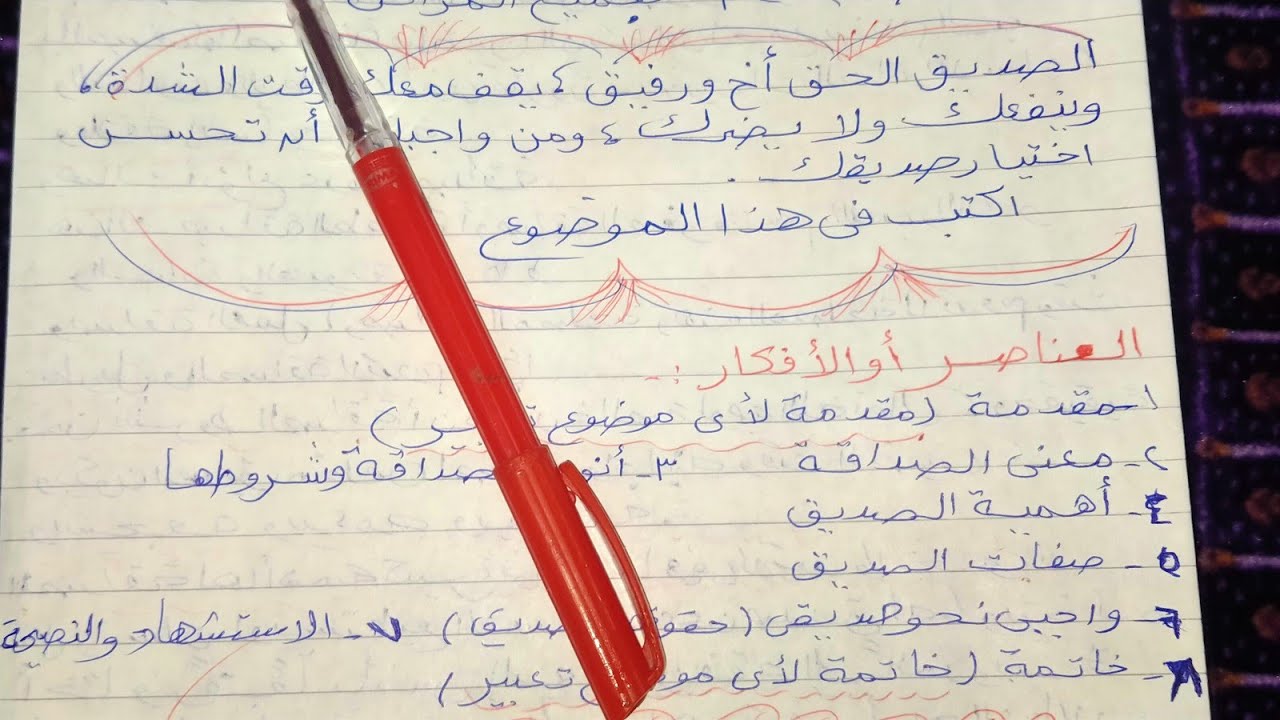 الصديق الحق أخ ورفيق ، يقف معك وقت الشدة ،
وينفعك ولا يضرك ، ومن أن تحسن
اختيار صديقك .
اكتب فى هذا الموضوع
العناصر أو الأفكار :-
١- مقدمة (مقدمة لأى موضوع)
٢- معنى الصداقة ٣- وشروطها
٤- أهمية الصديق
٥- صفات الصديق
٦- واجبى نحو صديقى ( ) ٧- الاستشهاد والنصيحة
٨- خاتمة (خاتمة لأى تعبير)